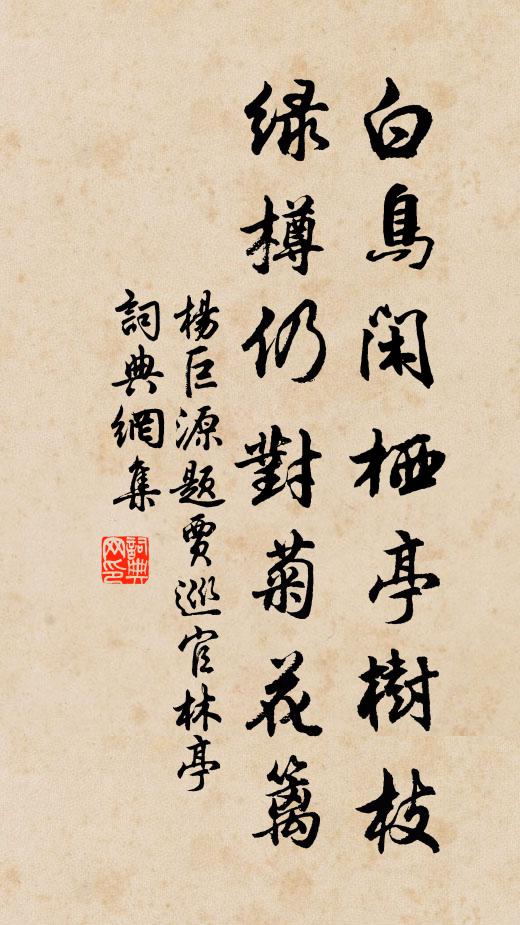 白鳥閑栖亭樹枝
緑樽仍對菊花籬
楊巨源题賈巡官林亭
詞典網集
詞典网印